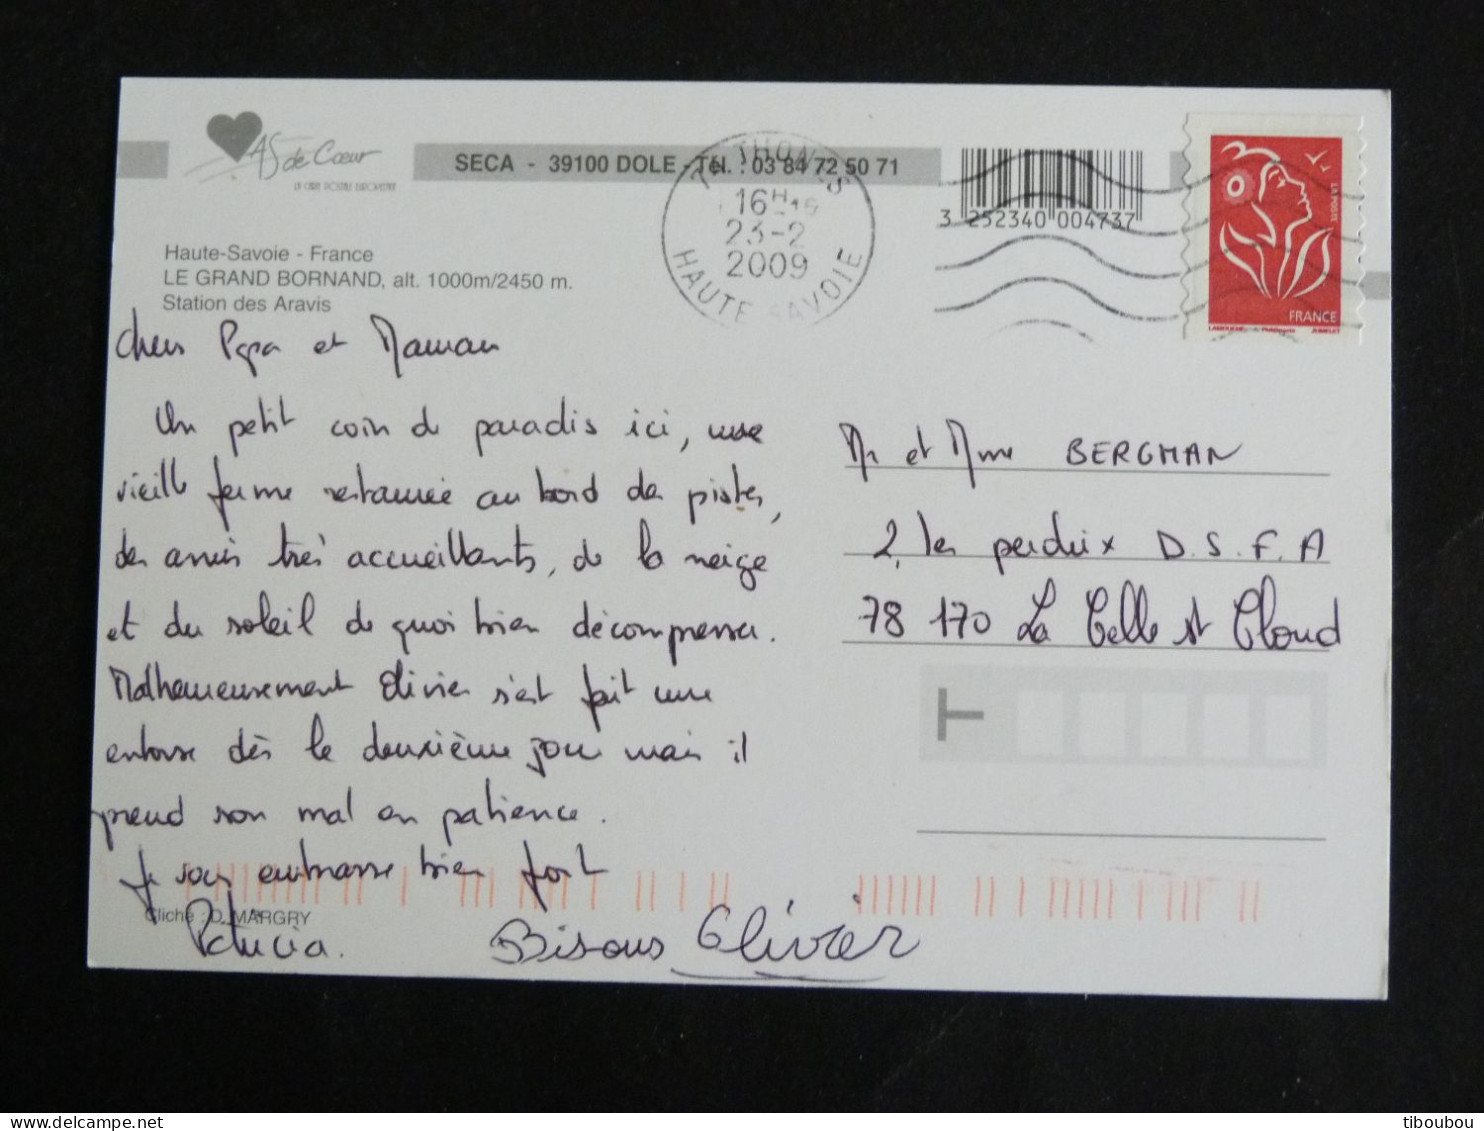 As de Cœur
LA CARTE POSTALE EUROPEENNE
SECA - 39100 DOLE - Tél. : 03 84 72 50 71
74 THONES
16H15
23-2
2009
HAUTE SAVOIE
3 252340 004737
LA POSTE
FRANCE
LAMOUCHE
Haute-Savoie - France
LE GRAND BORNAND, alt. 1000m/2450 m.
Station des Aravis
Chers Papa et Maman
Un petit coin de paradis ici, une
vieille ferme restaurée au bord des pistes,
des amis très accueillants, de la neige
et du soleil de quoi bien décompresser.
Malheureusement Olivier s'est fait une
entorse dès le deuxième jour mais il
prend son mal en patience.
Je vous embrasse bien fort
Patricia. Bisous Olivier
Cliché : D. MARGRY
Mr et Mme BERGMAN
2, les perdrix D.S.F.A
78 170 La Celle St Cloud
T
tiboubou